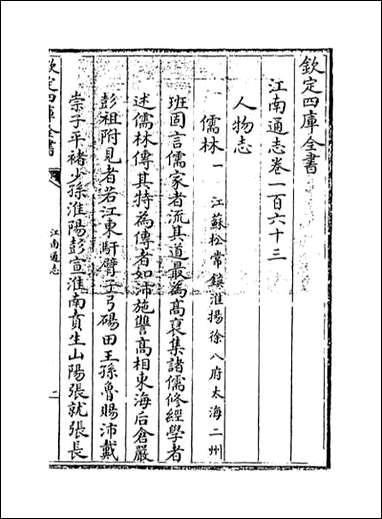 欽定四庫全書
江南通志卷一百六十三
人物志
儒林一 江蘇松常鎮淮揚徐八府太海二州
班固言儒家者流其道最為髙裒集諸儒修經學者
述儒林傳其持為傳者如沛施讐髙相東海后倉嚴
彭祖附見者若江東馯臂子弓碭田王孫魯賜沛戴
崇子平褚少孫淮陽彭宣淮南賁生山陽張就張長
欽定四庫全書
江南通志